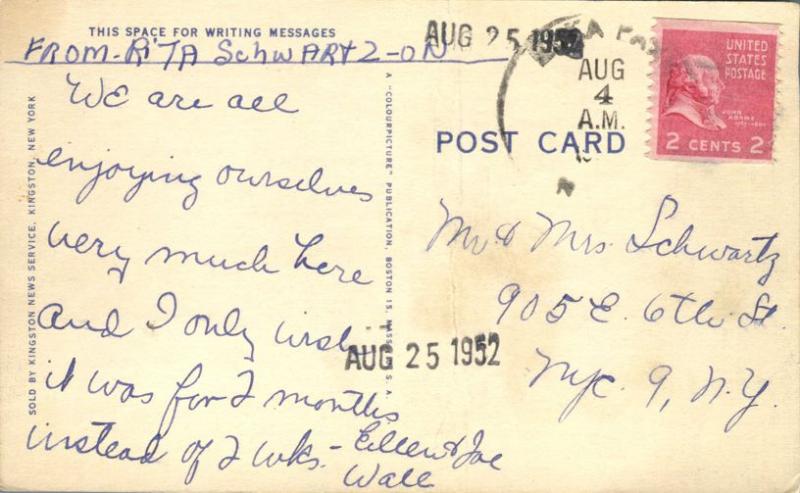 THIS SPACE FOR WRITING MESSAGES
FROM-RITA SCHWARTZ-ON
We are all
enjoying ourselves
very much here
and I only wish
it was for 2 months
instead of 2 wks. - Eileen & Joe
Wall
SOLD BY KINGSTON NEWS SERVICE, KINGSTON, NEW YORK
A "COLOURPICTURE" PUBLICATION, BOSTON 15, MASS., U.S.A.
AUG 25 1952
AUG
4
A.M.
UNITED
STATES
POSTAGE
JOHN
ADAMS
2 CENTS 2
POST CARD
Mr & Mrs. Schwartz
905 E. 6th St.
NYC. 9, N.Y.
AUG 25 1952